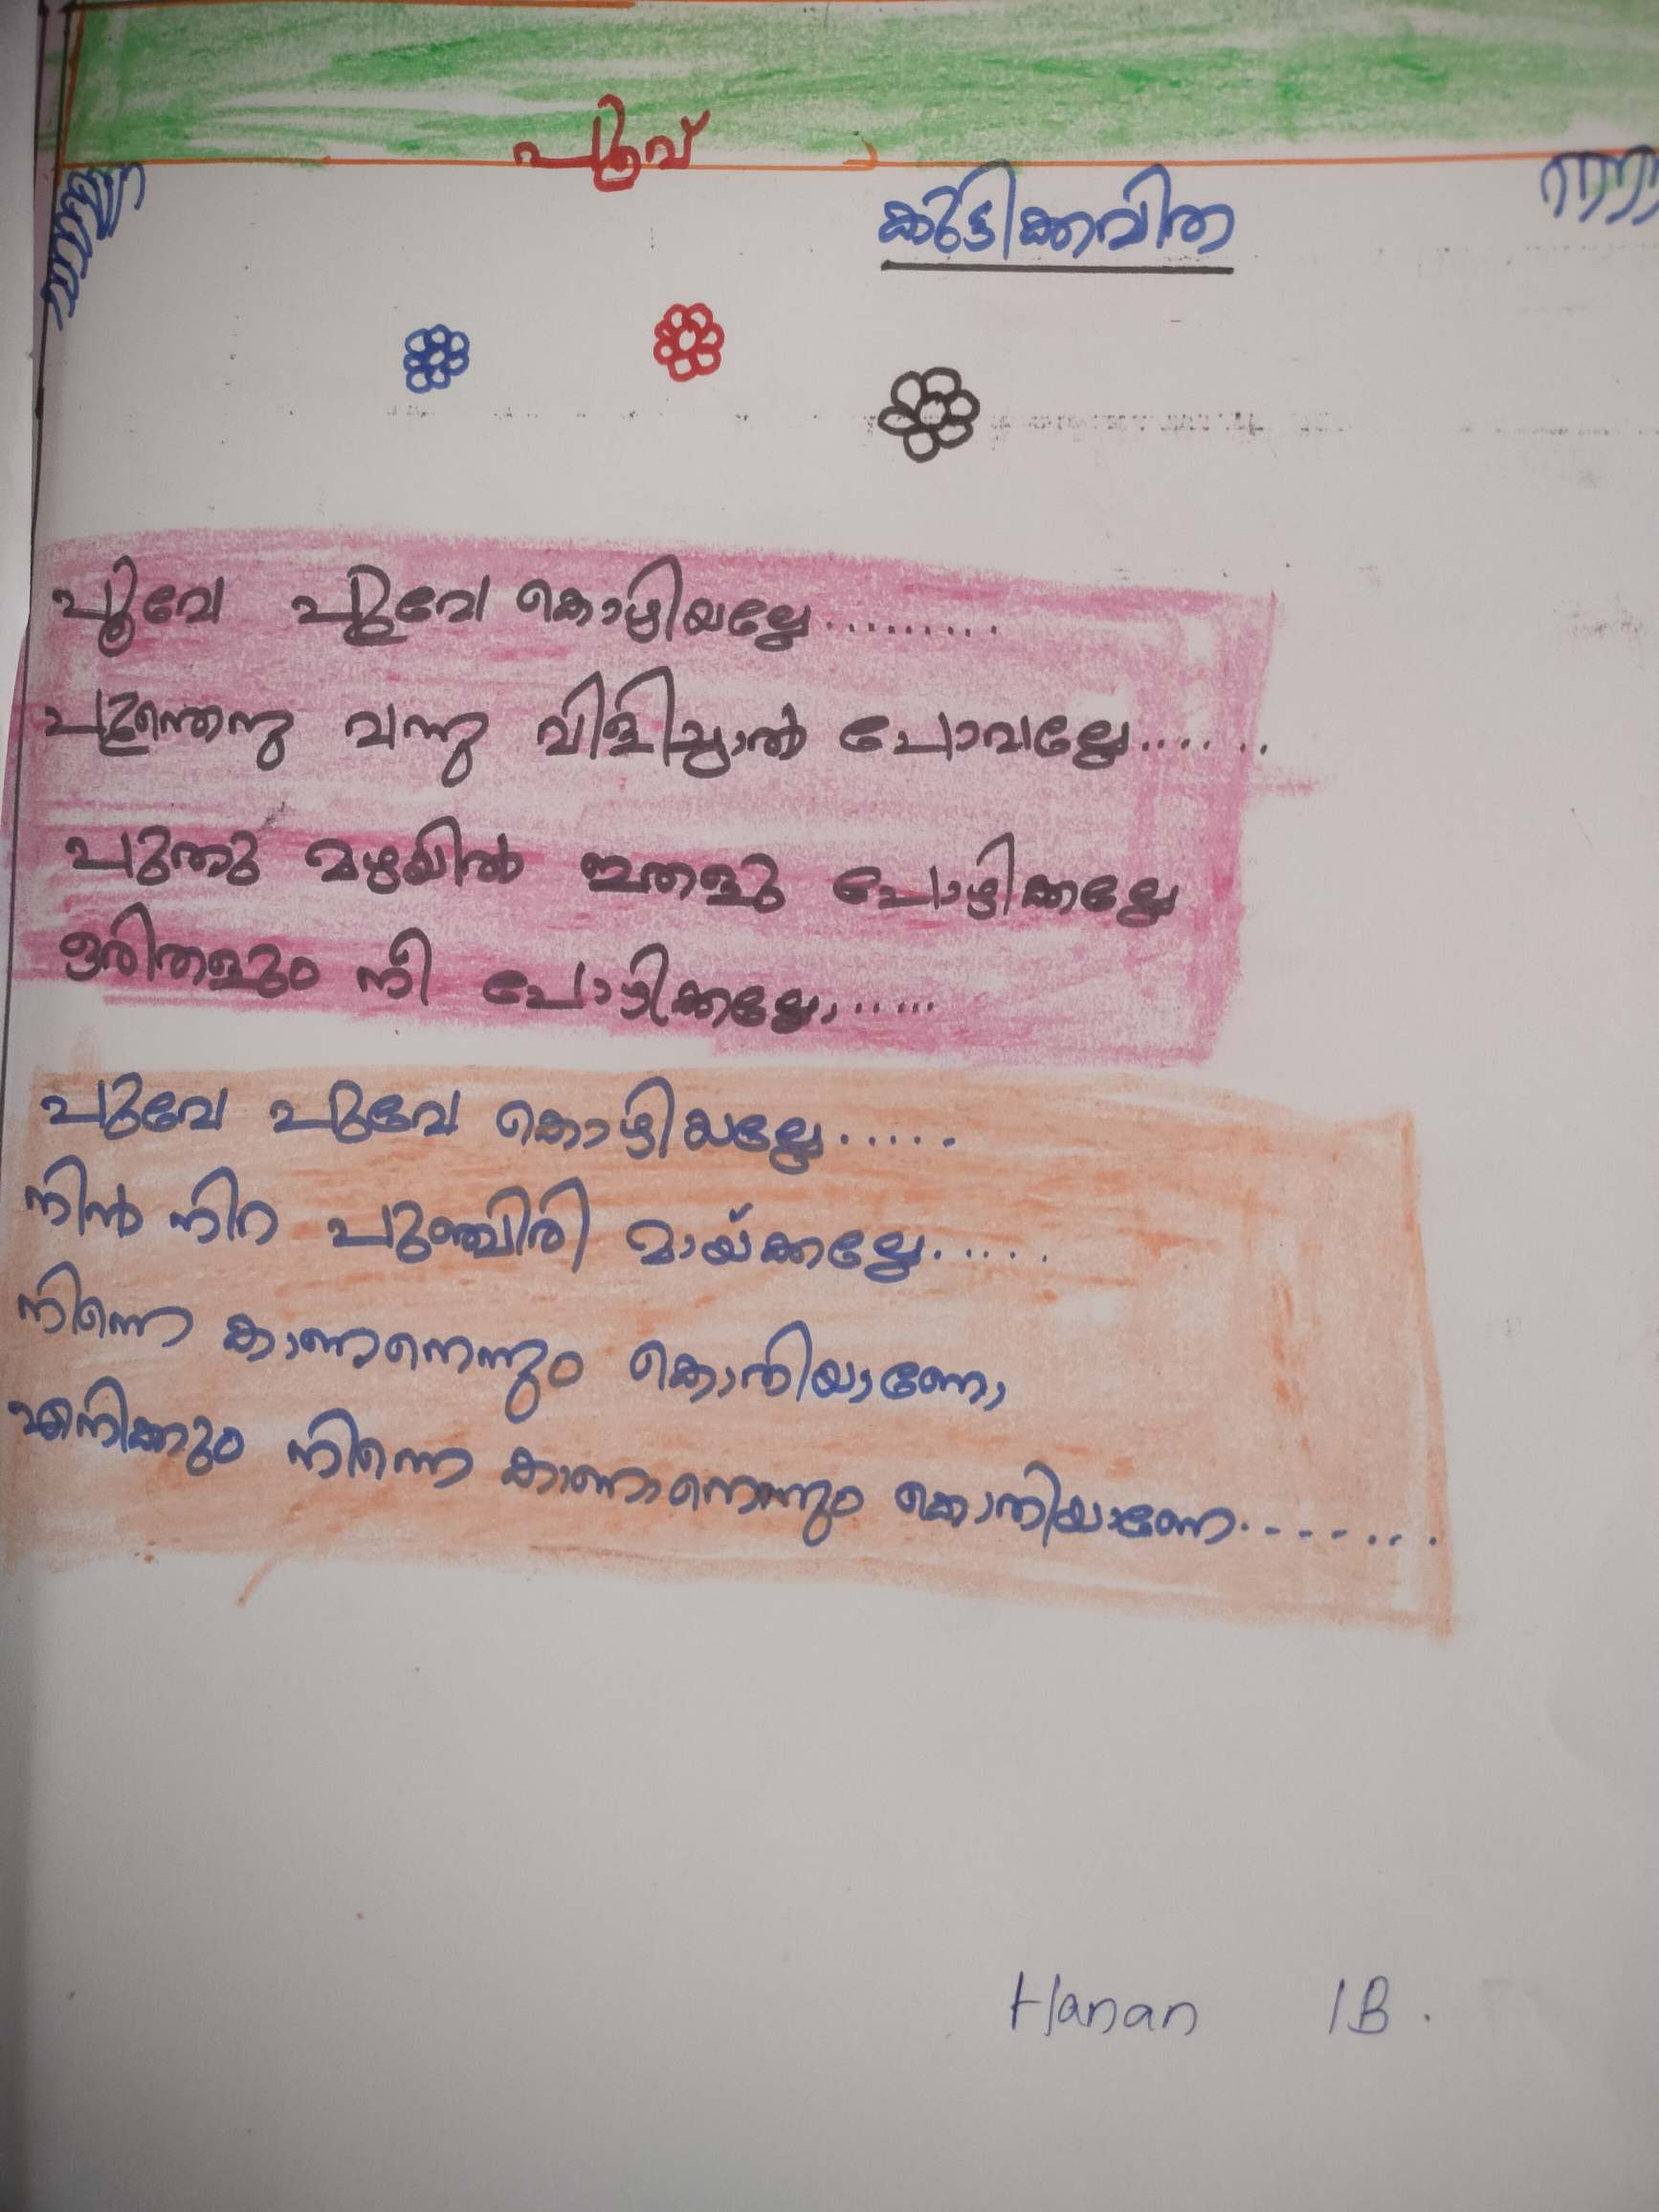 പൂവ്
കുട്ടിക്കവിത
പൂവേ പൂവേ കൊഴിയല്ലേ.........
പൂന്തെന്നു വന്നു വിളിച്ചാൽ പോവല്ലേ......
പുതു മഴയിൽ ഇതളു പോഴിക്കല്ലേ
ഒരിതളും നീ പോഴിക്കല്ലേ.......
പുവേ പുവേ കൊഴിയല്ലേ.....
നിൻ നിറ പുഞ്ചിരി മായ്ക്കല്ലേ.....
നിന്നെ കാണാനെന്നും കൊതിയാണേ,
എനിക്കും നിന്നെ കാണാനെന്നും കൊതിയാണേ........
Hanan 1B.